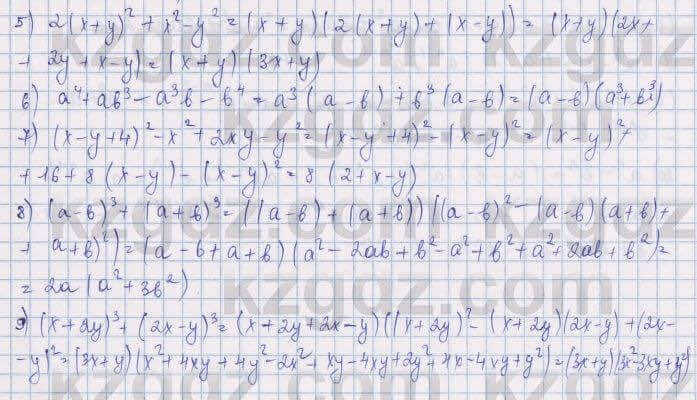 5) 2(x+y)²+x²-y²=(x+y)(2(x+y)+(x-y))=(x+y)(2x+
+2y+x-y)=(x+y)(3x+y)
6) a⁴+ab³-a³b-b⁴=a³(a-b)+b³(a-b)=(a-b)(a³+b³)
7) (x-y+4)²-x²+2xy-y²=(x-y+4)²-(x-y)²=(x-y)²+
+16+8(x-y)-(x-y)²=8(2+x-y)
8) (a-b)³+(a+b)³=((a-b)+(a+b))((a-b)²-(a-b)(a+b)+
+(a+b)²)=(a-b+a+b)(a²-2ab+b²-a²+b²+a²+2ab+b²)=
=2a(a²+3b²)
9) (x+2y)³+(2x-y)³=(x+2y+2x-y)((x+2y)²-(x+2y)(2x-y)+(2x-
-y)²=(3x+y)(x²+4xy+4y²-2x²+xy-4xy+2y²+4x-4xy+y²)=(3x+y)(3x²-3xy+y²)
kzgdz.com